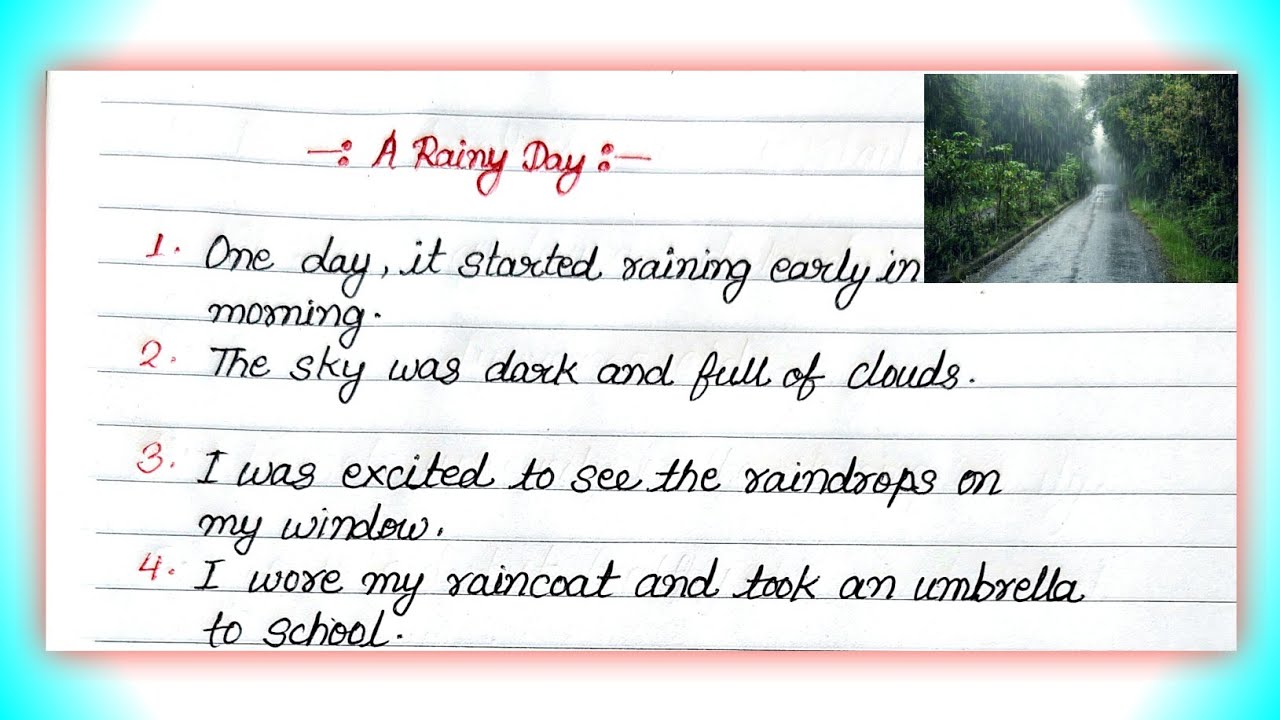 -: A Rainy Day :-
1. One day, it started raining early in
morning.
2. The sky was dark and full of clouds.
3. I was excited to see the raindrops on
my window.
4. I wore my raincoat and took an umbrella
to school.